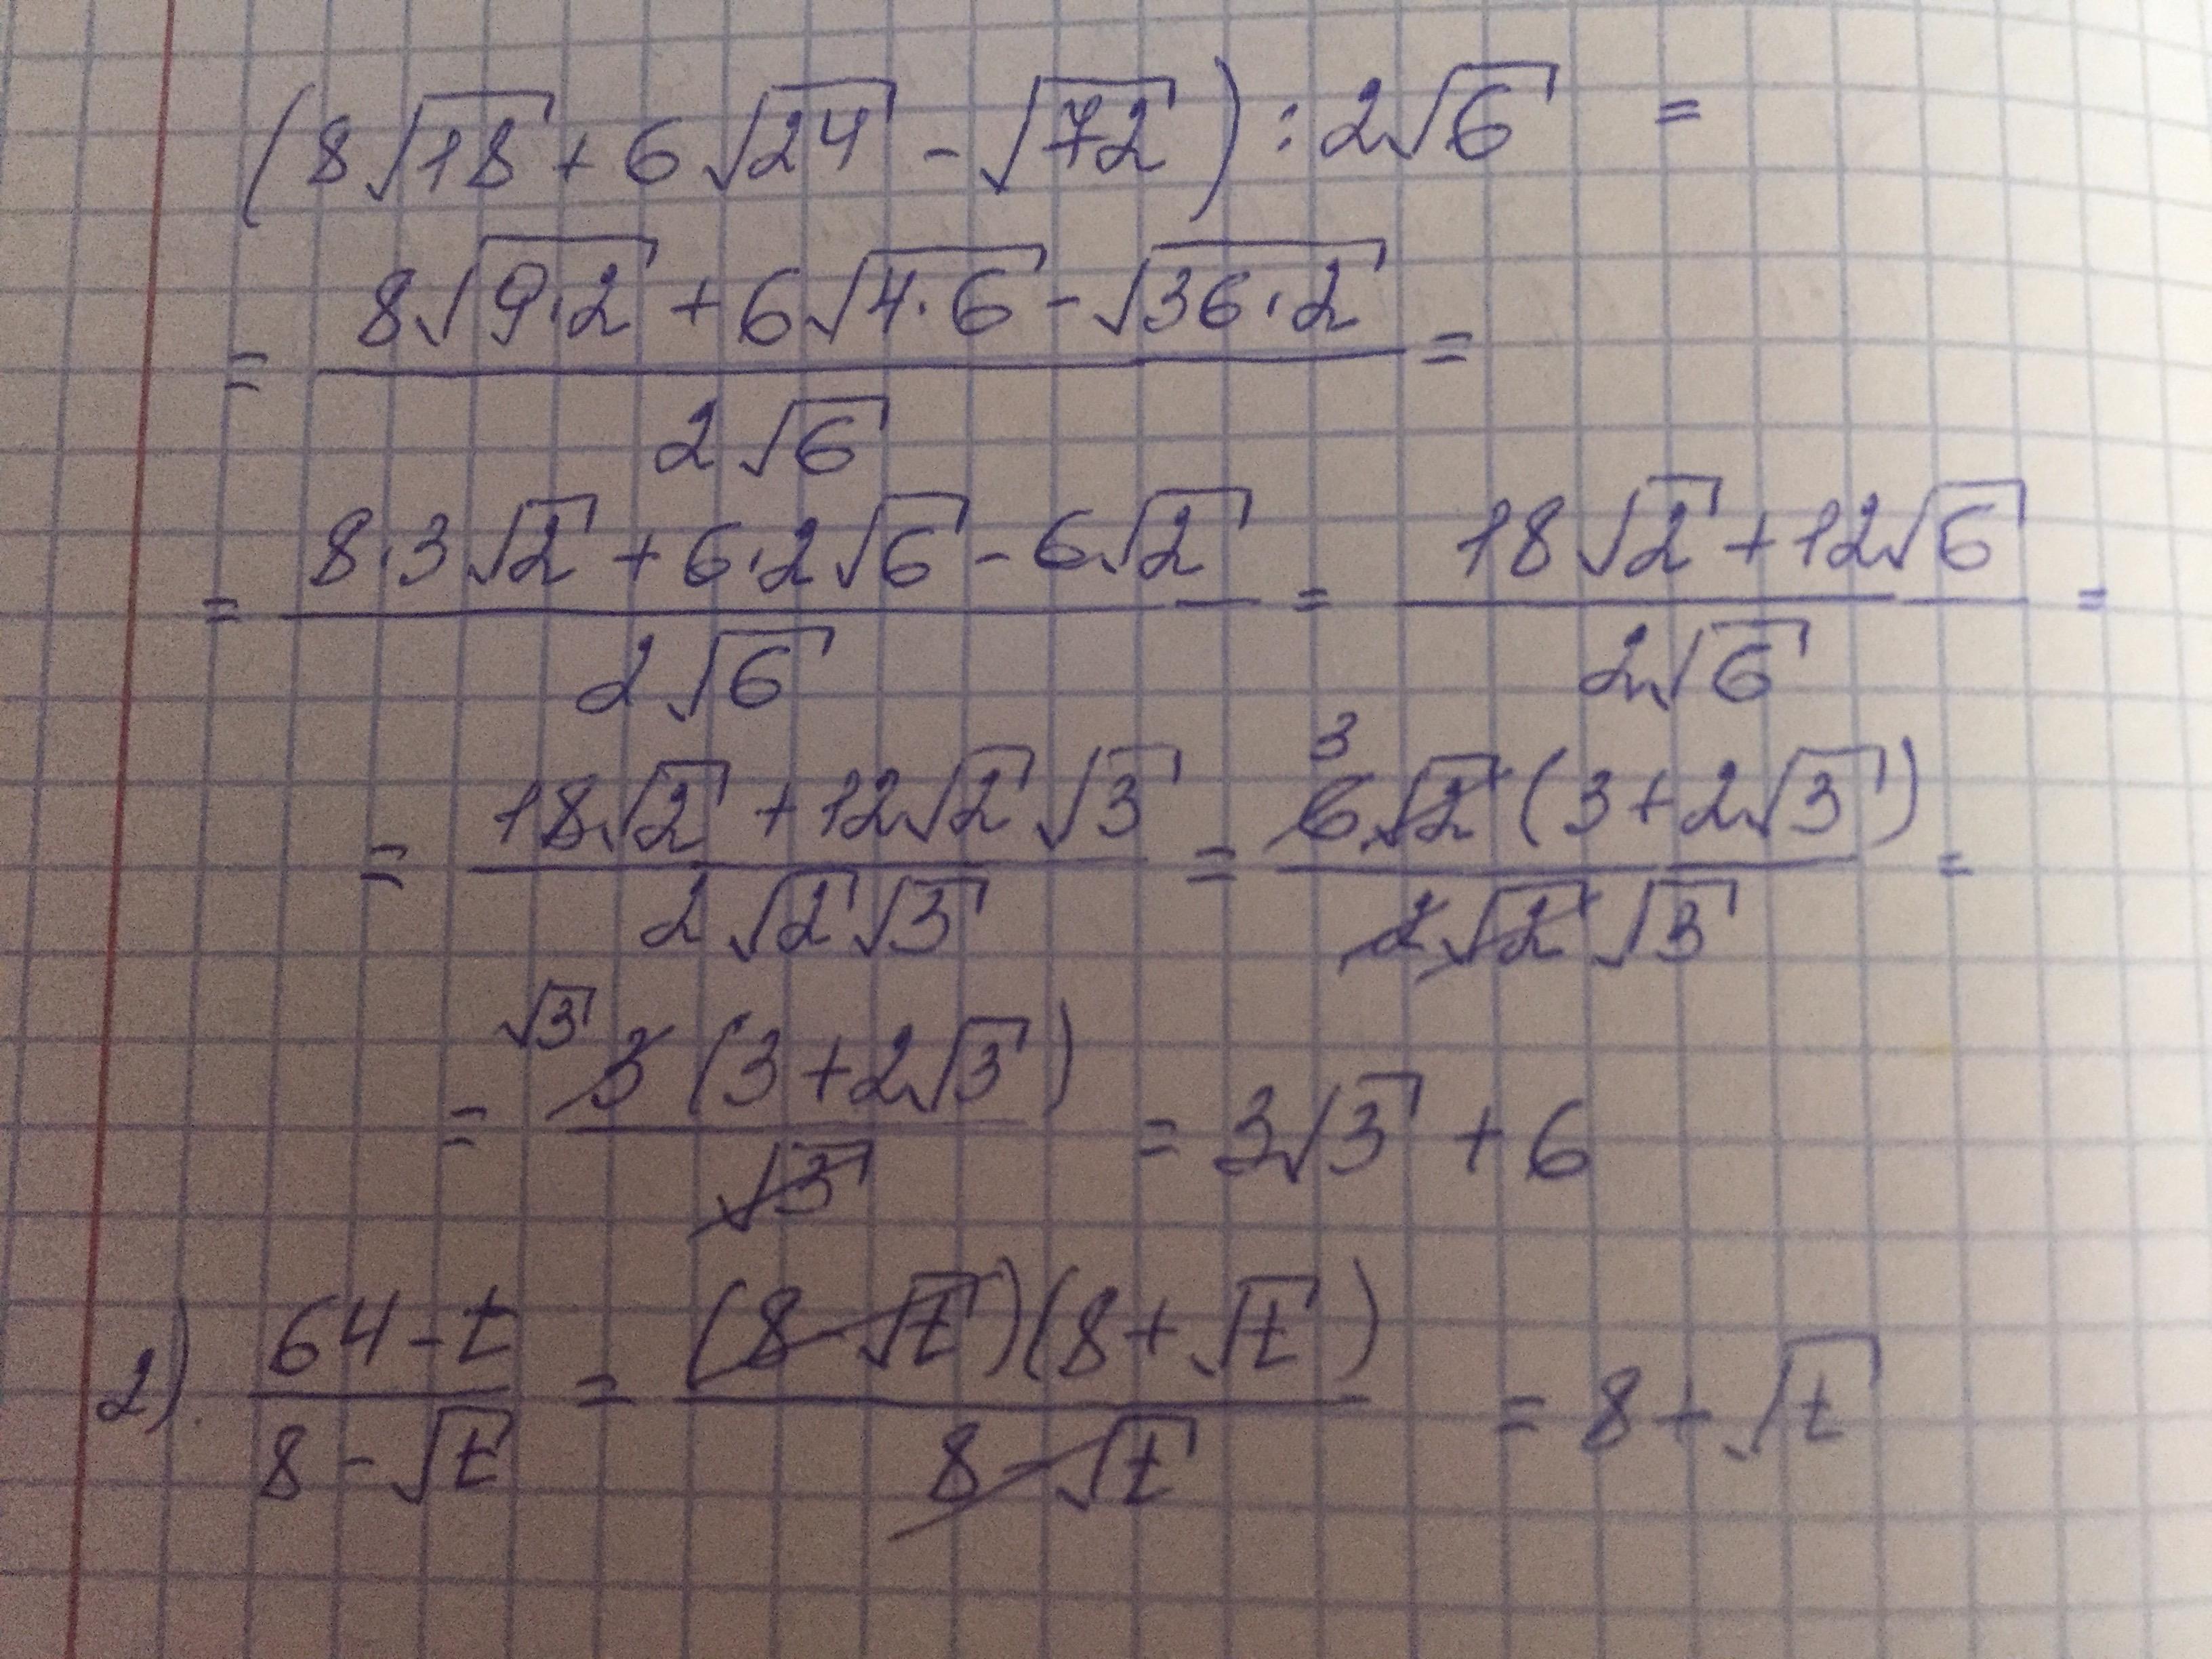 (8√18 + 6√24 - √72) : 2√6 =
= (8√(9·2) + 6√(4·6) - √(36·2)) / (2√6) =
= (8·3√2 + 6·2√6 - 6√2) / (2√6) = (18√2 + 12√6) / (2√6) =
= (18√2 + 12√2 √3) / (2√2√3) = 3 6√2 (3 + 2√3) / (2√2 √3) =
= √3 3 (3 + 2√3) / √3 = 3√3 + 6
2). (64 - t) / (8 - √t) = (8 - √t)(8 + √t) / (8 - √t) = 8 + √t